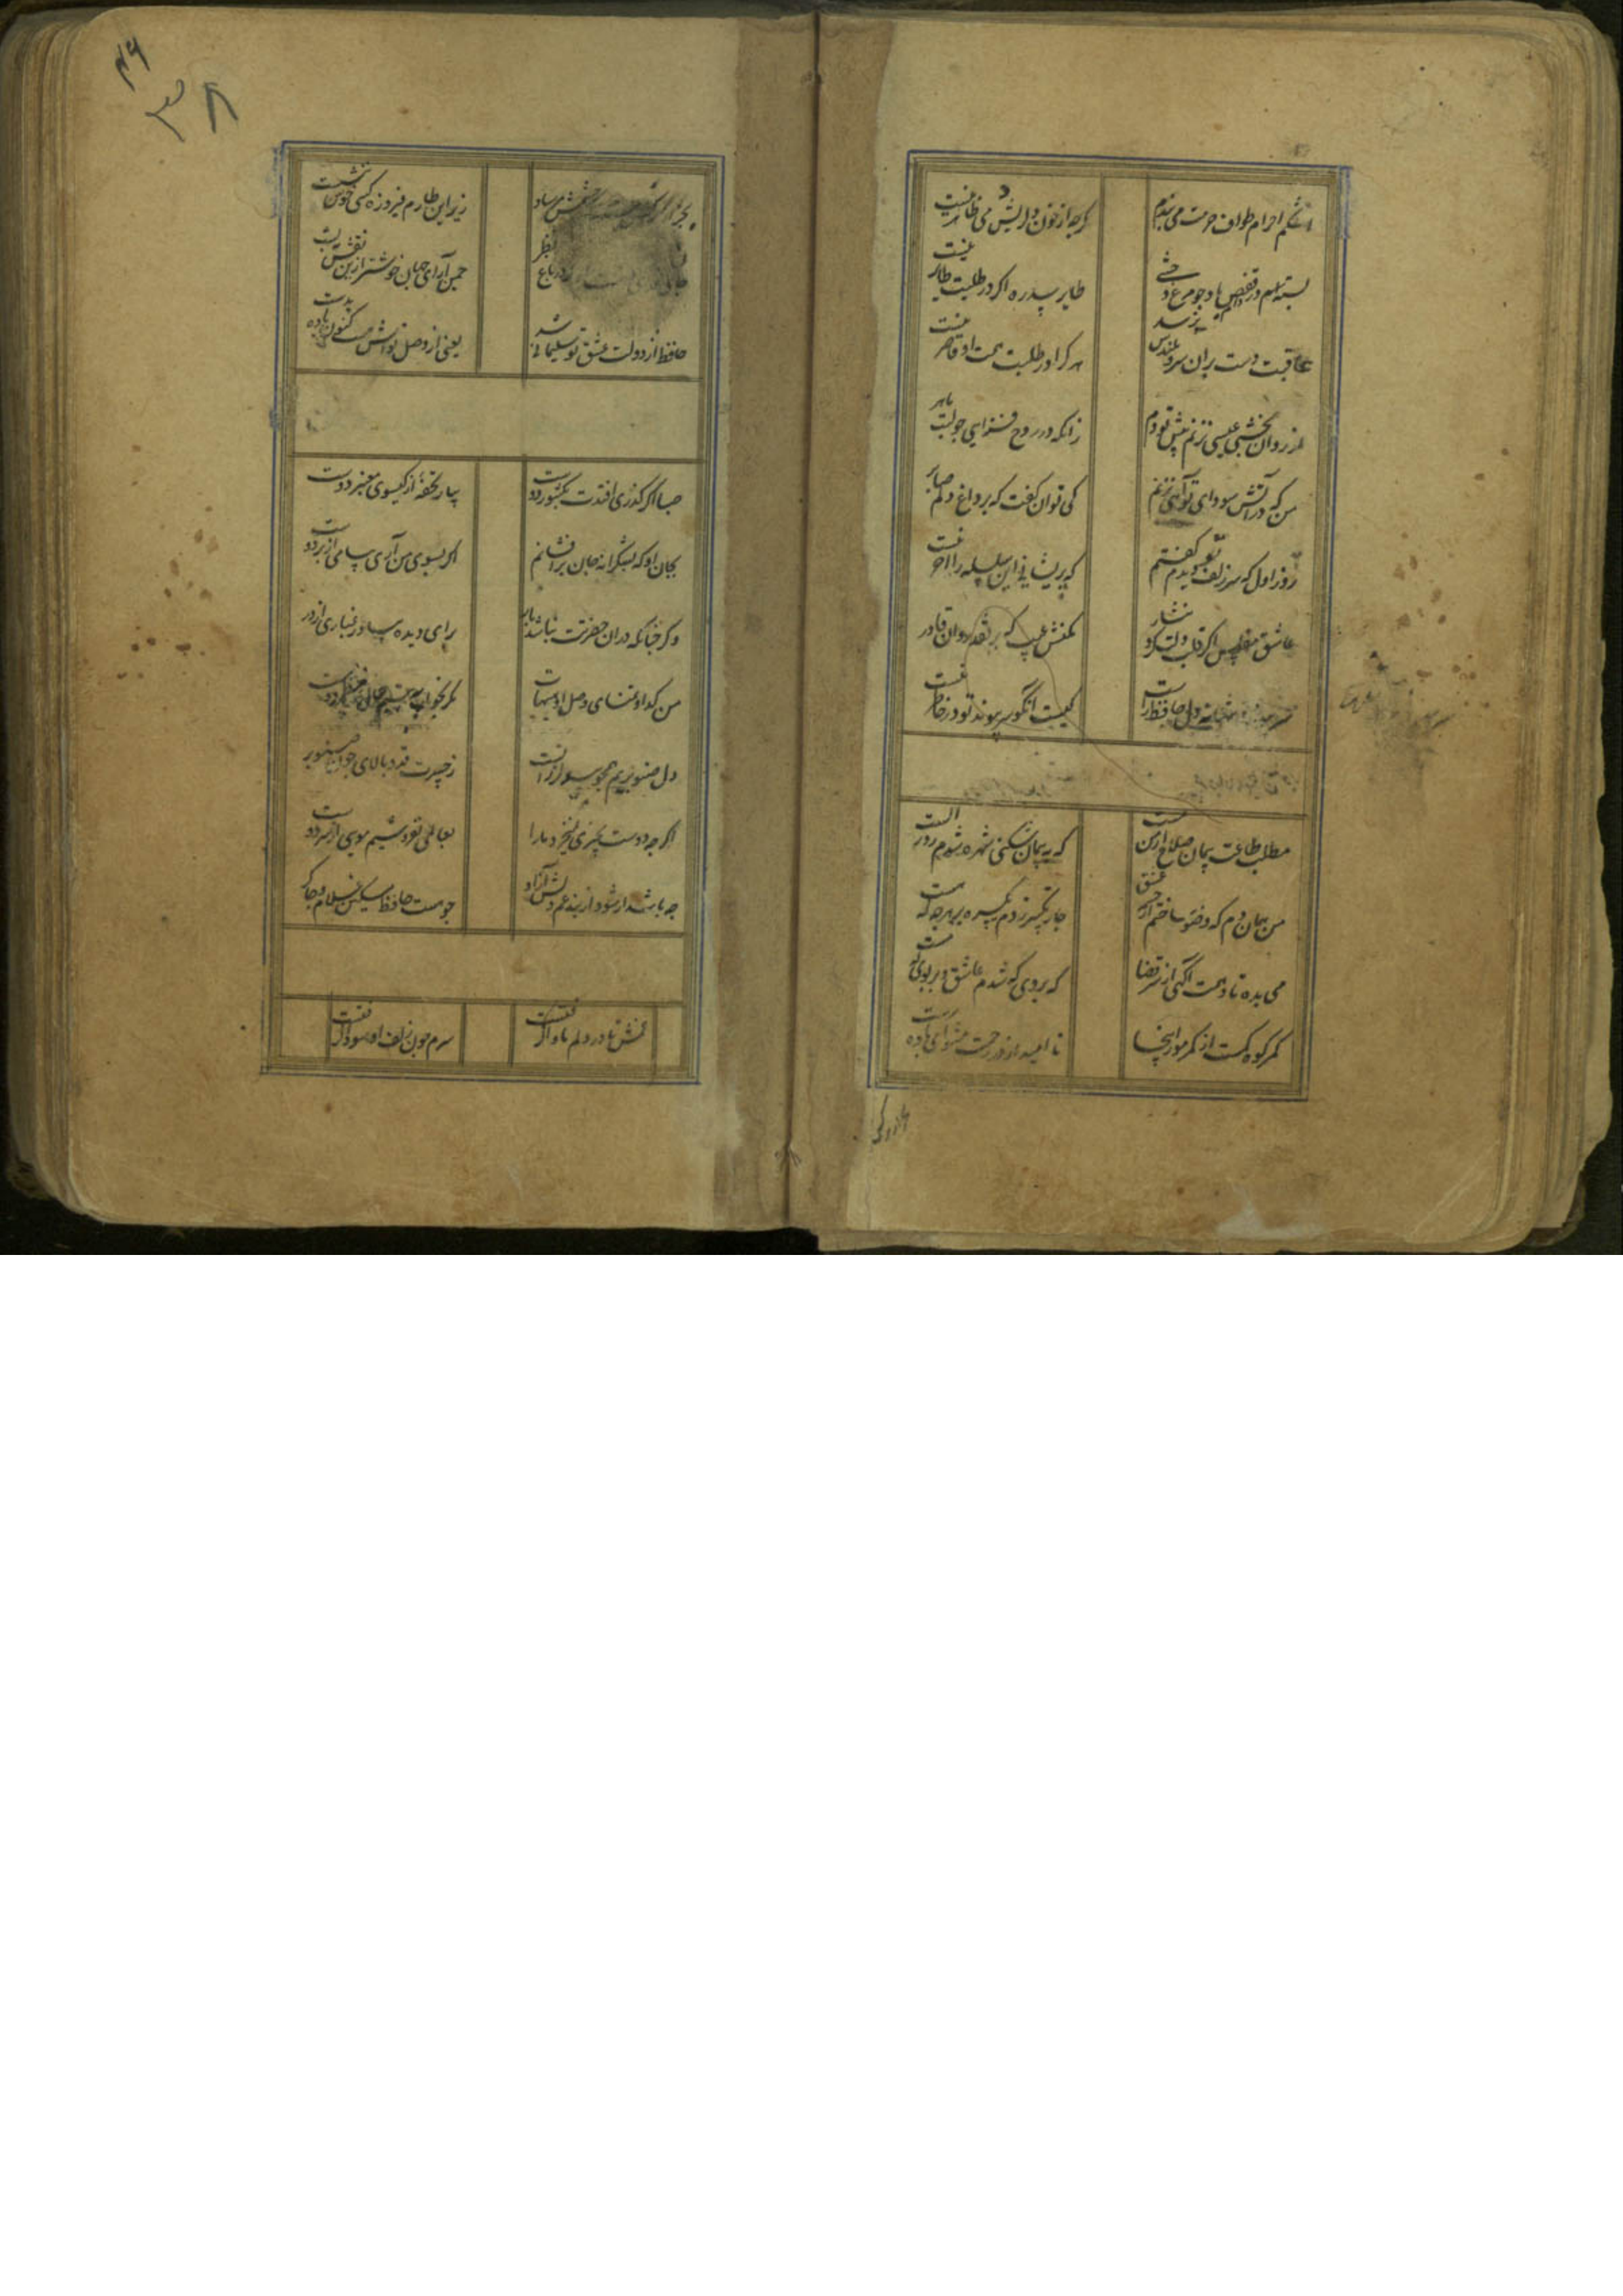 اشکم احرام طواف حرمت می‌بندد
گرچه از خون دل ریش دمی طاهر نیست
بسته دام و قفص باد چو مرغ وحشی
طایر سدره اگر در طلبت طایر نیست
عاقبت دست بدان سرو بلندش برسد
هر کرا در طلبت همت او قاصر نیست
از روان بخشی عیسی نزنم پیش تو دم
زانکه در روح فزایی چو لبت ماهر
من که در آتش سودای تو آهی نزنم
کی توان گفت که بر داغ دلم صابر
روز اول که سر زلف تو دیدم گفتم
که پریشانی این سلسله را آخر نیست
عاشق مفلس اگر قلب دلت کرد نثار
مکنش عیب که بر نقد روان قادر
سر پیوند تو تنها نه دل حافظ راست
کیست آنکو سر پیوند تو در خاطر نیست
مطلب طاعت و پیمان صلاح از من مست
که به پیمان شکنی شهره شدم روز الست
من همان دم که وضو ساختم از چشمه عشق
چار تکبیر زدم یکسره بر هر چه که هست
می بده تا دهمت آگهی از سر قضا
که بروی که شدم عاشق و بر بوی که مست
کمر کوه کمست از کمر مور اینجا
نا امید از در رحمت مشو ای باده پرست
بجز آن نرگس مستانه که چشمش مرساد
زیر این طارم فیروزه کسی خوش ننشست
جان فدای باغ نظر
چمن آرای جهان خوشتر ازین نقش نبست
حافظ از دولت عشق تو سلیمانی شد
یعنی از وصل تواش نیست کنون باده بدست
صبا اگر گذری افتدت بکشور دوست
بیار تحفه از گیسوی معنبر دوست
بجان او که بشکرانه جان برافشانم
اگر بسوی من آری پیامی از بر دوست
وگر چنانکه در آن حضرت نباشد بار
برای دیده بیاور غباری از در
من گدا و تمنای وصل او هیهات
مگر بخواب ببینم جمال دوست
دل صنوبریم همچو بید لرزانست
ز حسرت قد و بالای چون صنوبر
اگرچه دوست بچیزی نمیخرد ما را
بعالمی نفروشیم مویی از سر دوست
چه باشد ار شود از بند غم دلش آزاد
چو هست حافظ مسکین غلام و چاکر
غمش تا در دلم ماوا گرفتست
سرم چون زلف او سودا گرفتست
۴۶
۳۸